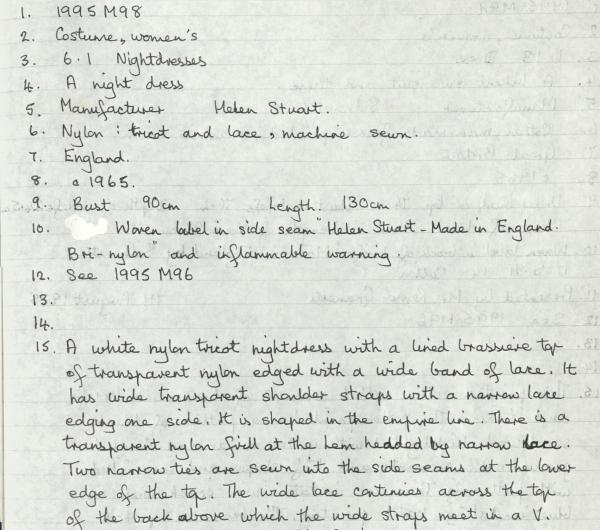 1. 1995 M98
2. Costume, women's
3. 6.1 Nightdresses
4. A night dress
5. Manufacturer Helen Stuart.
6. Nylon : tricot and lace, machine sewn.
7. England.
8. c 1965.
9. Bust 90cm Length. 130cm
10. Woven label in side seam "Helen Stuart - Made in England.
Bri-nylon" and inflammable warning.
12. See 1995 M96
13.
14.
15. A white nylon tricot nightdress with a lined brassiere top
of transparent nylon edged with a wide band of lace. It
has wide transparent shoulder straps with a narrow lace
edging one side. It is shaped in the empire line. There is a
transparent nylon frill at the hem hedded by narrow lace.
Two narrow ties are sewn into the side seams at the lower
edge of the top. The wide lace continues across the top
of the back above which the wide straps meet in a V.